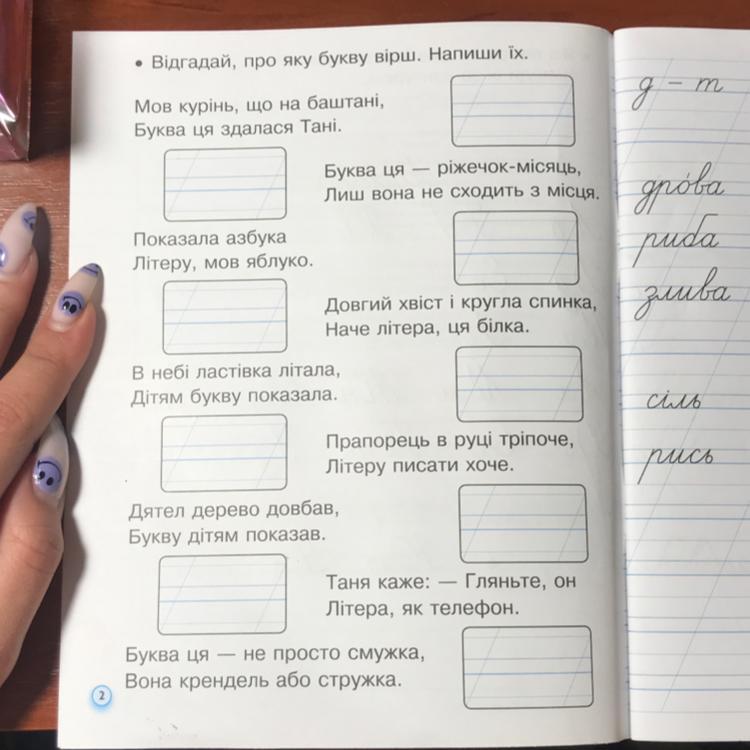 • Відгадай, про яку букву вірш. Напиши їх.
Мов курінь, що на баштані,
Буква ця здалася Тані.
Буква ця — ріжечок-місяць,
Лиш вона не сходить з місця.
Показала азбука
Літеру, мов яблуко.
Довгий хвіст і кругла спинка,
Наче літера, ця білка.
В небі ластівка літала,
Дітям букву показала.
Прапорець в руці тріпоче,
Літеру писати хоче.
Дятел дерево довбав,
Букву дітям показав.
Таня каже: — Гляньте, он
Літера, як телефон.
Буква ця — не просто смужка,
Вона крендель або стружка.
2
д – т
дро́ва
риба
злива
сіль
рись